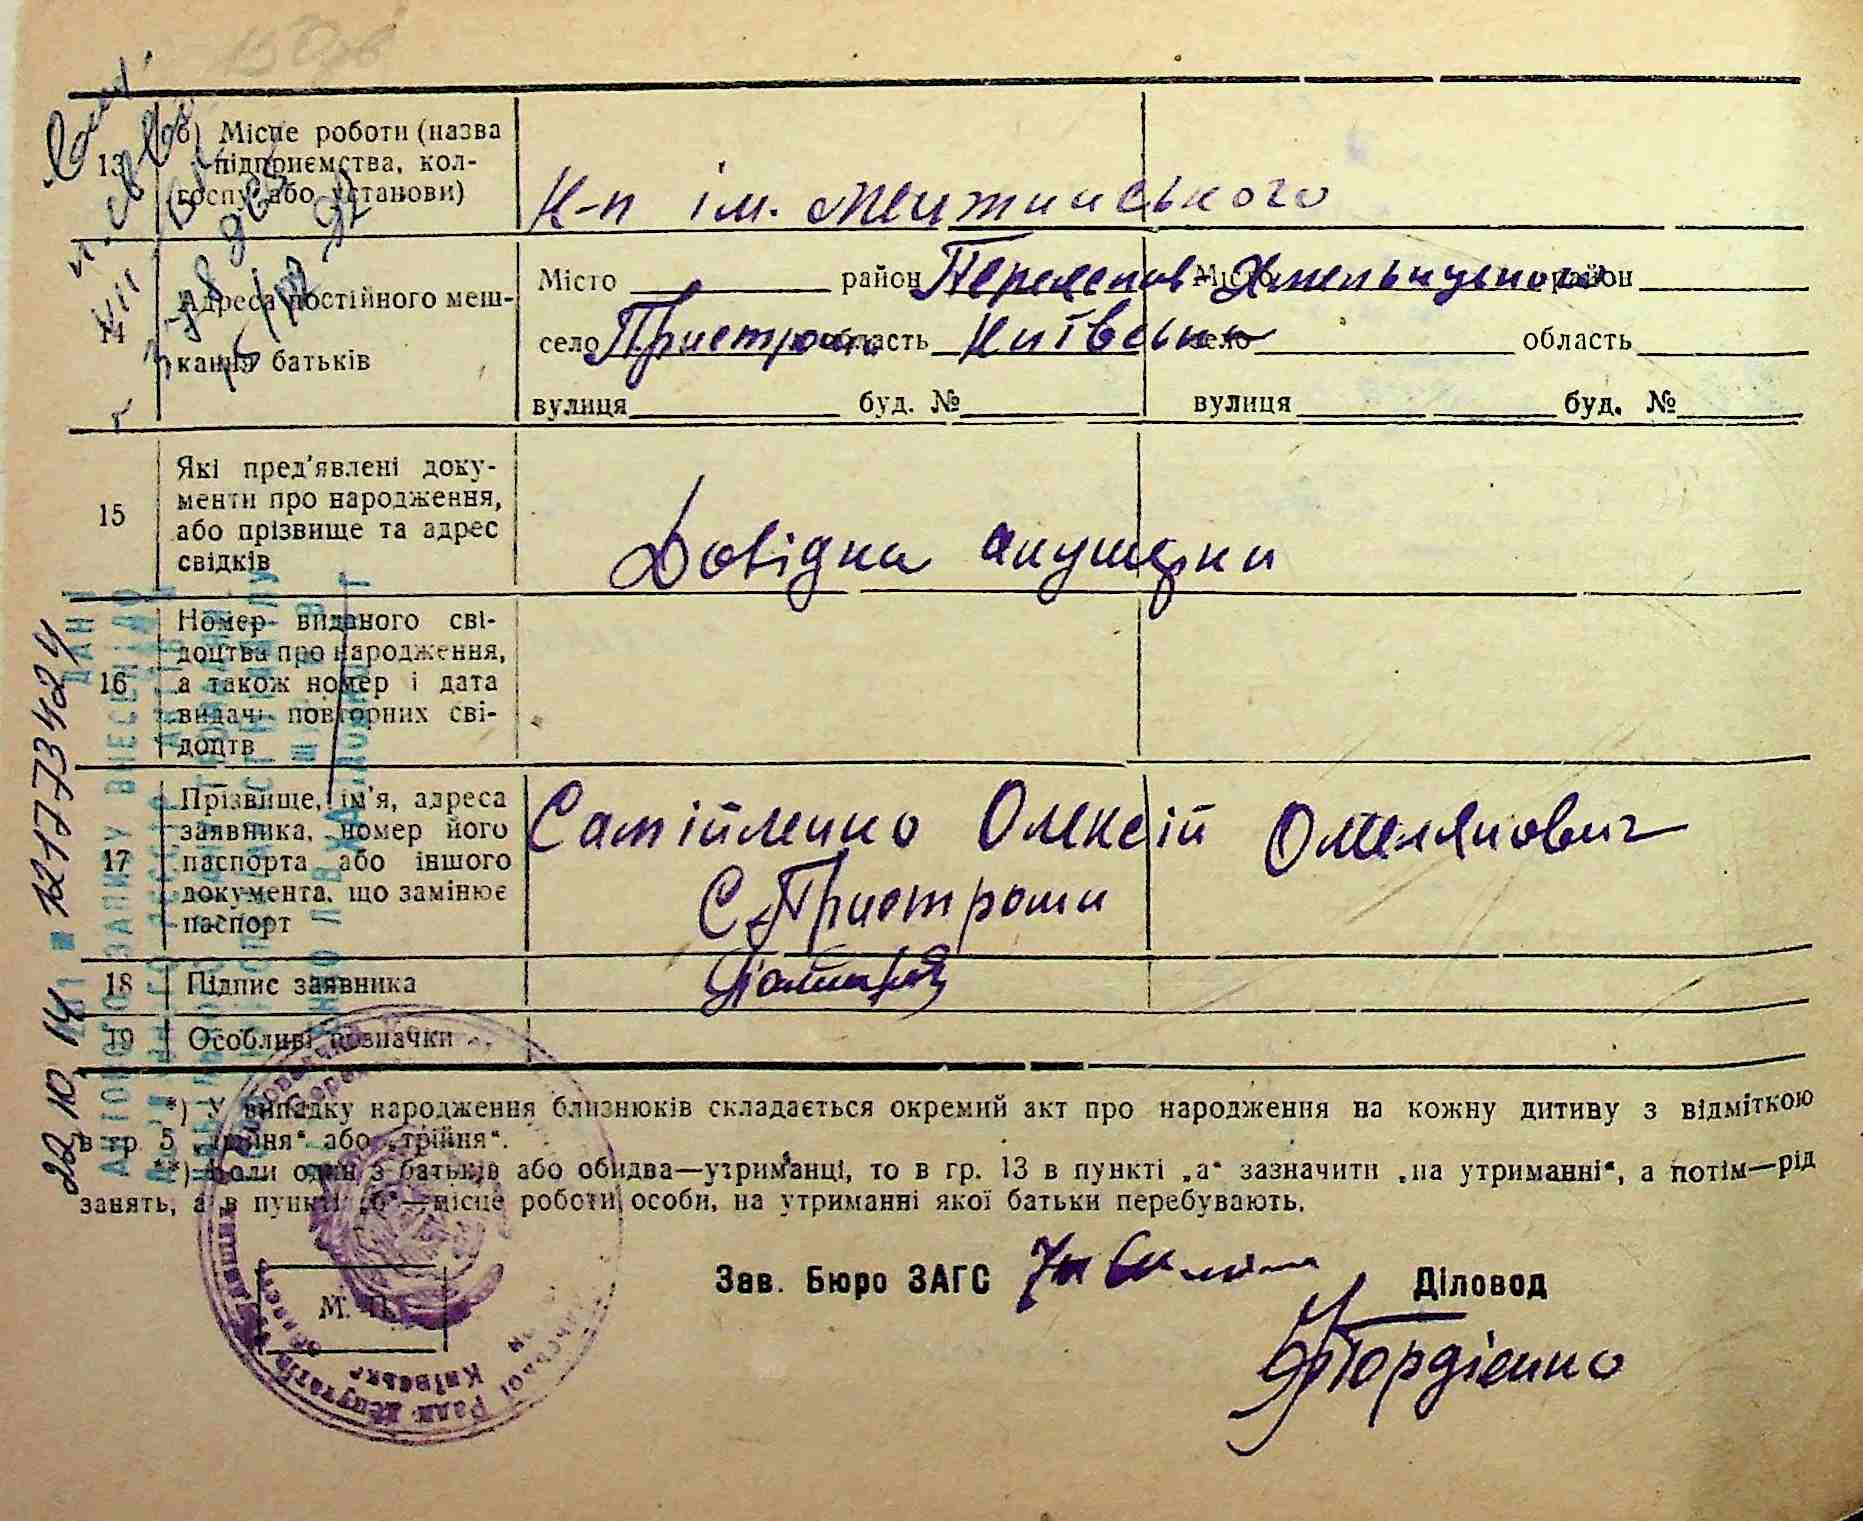 13
б) Місце роботи (назва
підприємства, кол-
госпу або установи)
К-п ім. Менжинського
14
Адреса постійного меш-
кання батьків
Місто район Переяслав-Хмельницького Місто район
село Пристроми область Київська село область
вулиця буд. № вулиця буд. №
15
Які пред'явлені доку-
менти про народження,
або прізвище та адрес
свідків
Довідка акушерки
16
Номер виданого сві-
доцтва про народження,
а також номер і дата
видачі повторних сві-
доцтв
17
Прізвище, ім'я, адреса
заявника, номер його
паспорта або іншого
документа, що замінює
паспорт
Самійленко Олексій Омелянович
С. Пристроми
18 Підпис заявника
19 Особливі позначки
*) У випадку народження близнюків складається окремий акт про народження на кожну дитину з відміткою
в гр. 5 „двійня“ або „трійня“.
**) Коли один з батьків або обидва—утриманці, то в гр. 13 в пункті „а“ зазначити „на утриманні“, а потім—рід
занять, а в пункті „б“—місце роботи особи, на утриманні якої батьки перебувають.
Зав. Бюро ЗАГС Діловод
Гордієнко
М. П.
22 10 14 121773424